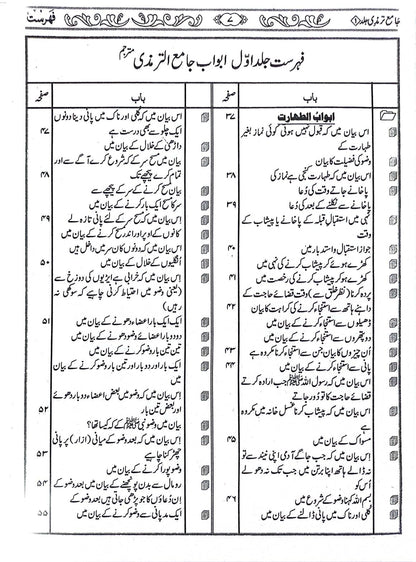 جامع ترمذی جلد ① ۷ فہرست
فہرست جلد اوّل ابواب جامع الترمذی مترجم
باب صفحہ
ابوابُ الطهارت ۳۷
اس بیان میں کہ قبول نہیں ہوتی کوئی نماز بغیر
طہارت کے
وضو کی فضیلت کا بیان
اس بیان میں کہ طہارت کنجی ہے نماز کی ۳۸
پاخانے جاتے وقت کی دُعا
پاخانے سے نکلنے کے بعد کی دُعا ۳۹
نہی میں استقبال قبلہ کے پاخانے یا پیشاب کے
وقت
جواز استقبال و استدبار میں ۴۰
کھڑے ہو کر پیشاب کرنے کی نہی میں
کھڑے ہوئے پیشاب کرنے کی رخصت میں ۴۱
پردہ کرنا (نظر خلق سے) وقت قضائے حاجت کے
داہنے ہاتھ سے استنجاء کرنے کی کراہت کا بیان ۴۲
ڈھیلوں سے استنجاء کرنے کے بیان میں
دو پتھروں سے استنجاء کرنے کے بیان میں
اُن چیزوں کا بیان جن سے استنجا کرنا مکروہ ہے ۴۳
پانی سے استنجا کرنے کے بیان میں ۴۴
اس بیان میں کہ رسول اللہ ﷺ جب ارادہ کرتے
قضائے حاجت کا تو دُور جاتے
اس بیان میں کہ پیشاب کرنا غسل خانہ میں مکروہ
ہے
مسواک کے بیان میں ۴۵
اِس بیان میں کہ جب جاگے آدمی اپنی نیند سے تو
نہ ڈالے ہاتھ اپنا برتن میں جب تک نہ دھو لے
اُس کو
بسم اللہ کہنا وضو کے شروع میں ۴۶
کلی اور ناک میں پانی ڈالنے کے بیان میں
باب صفحہ
اس بیان میں کہ کلی اور ناک میں پانی دینا دونوں
ایک چلو سے بھی درست ہے ۴۷
داڑھی کے خلال کے بیان میں
بیان میں مسح سر کے کہ شروع کرے آگے سے اور
تمام کرے پیچھے تک ۴۸
بیان مسح کرنے کے سر کے پیچھے سے
سر کا مسح ایک بار کرنے کے بیان میں
اس بیان میں کہ مسح سر کے لئے پانی تازہ لے ۴۹
کانوں کے اوپر اور اندر مسح کرنے کے بیان میں
اس بیان میں کہ دونوں کان سر میں داخل ہیں
اُنگلیوں کے خلال کے بیان میں ۵۰
اس بیان میں کہ خرابی ہے ایڑیوں کی دوزخ سے
(یعنی وضو میں احتیاط کرنی چاہیے کہ سوکھی نہ
رہیں)
ایک ایک بار اعضاء دھونے کے بیان میں ۵۱
دو دو بار اعضائے وضو دھونے کے بیان میں
تین تین بار وضو کرنے کے بیان میں
ایک بار اور دو بار اور تین بار وضو کرنے کے بیان
میں
اس بیان میں کہ وضو میں بعض اعضاء دو بار دھوئے
اور بعض تین بار ۵۲
بیان میں وضو نبی ﷺ کے کہ کیسا تھا؟
اس بیان میں کہ بعد وضو کے میانی (ازار) پر پانی
چھڑکنا چاہیے ۵۳
وضو پورا کرنے کے بیان میں
رومال سے بدن پونچھنے کے بیان میں بعد وضو کے ۵۴
اِن دُعاؤں کا جو پڑھی جاتی ہیں بعد وضو کے
ایک مد پانی سے وضو کرنے کے بیان میں ۵۵